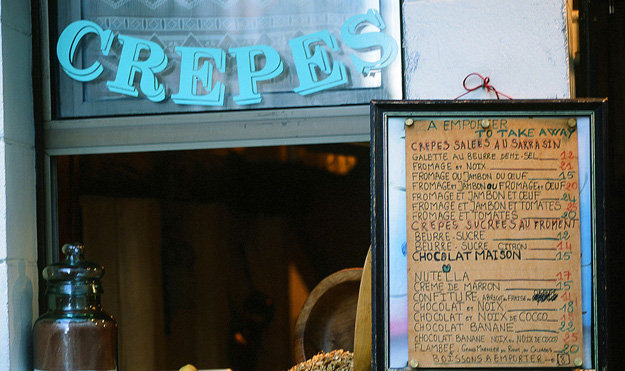 CREPES CREPES
A EMPORTER
TO TAKE AWAY
CREPES SALEES AU SARRASIN
GALETTE AU BEURRE DEMI-SEL 12
FROMAGE ET NOIX 21
FROMAGE OU JAMBON OU ŒUF 15
FROMAGE ET JAMBON OU FROMAGE ET ŒUF 20
FROMAGE ET JAMBON ET ŒUF 24
FROMAGE ET JAMBON ET TOMATES
FROMAGE ET TOMATES 20
CREPES SUCREES AU FROMENT
BEURRE-SUCRE 12
BEURRE-SUCRE CITRON 14
CHOCOLAT MAISON 15
NUTELLA 17
CREME DE MARRON 15
CONFITURE, ABRICOT OU FRAISE OU
CHOCOLAT ET NOIX 18
CHOCOLAT ET NOIX DE COCO
CHOCOLAT BANANE 22
CHOCOLAT BANANE NOIX OU NOIX DE COCO 25
FLAMBEE, GRAND MARNIER OU RHUM, OU CALVADOS 20
BOISSONS A EMPORTER